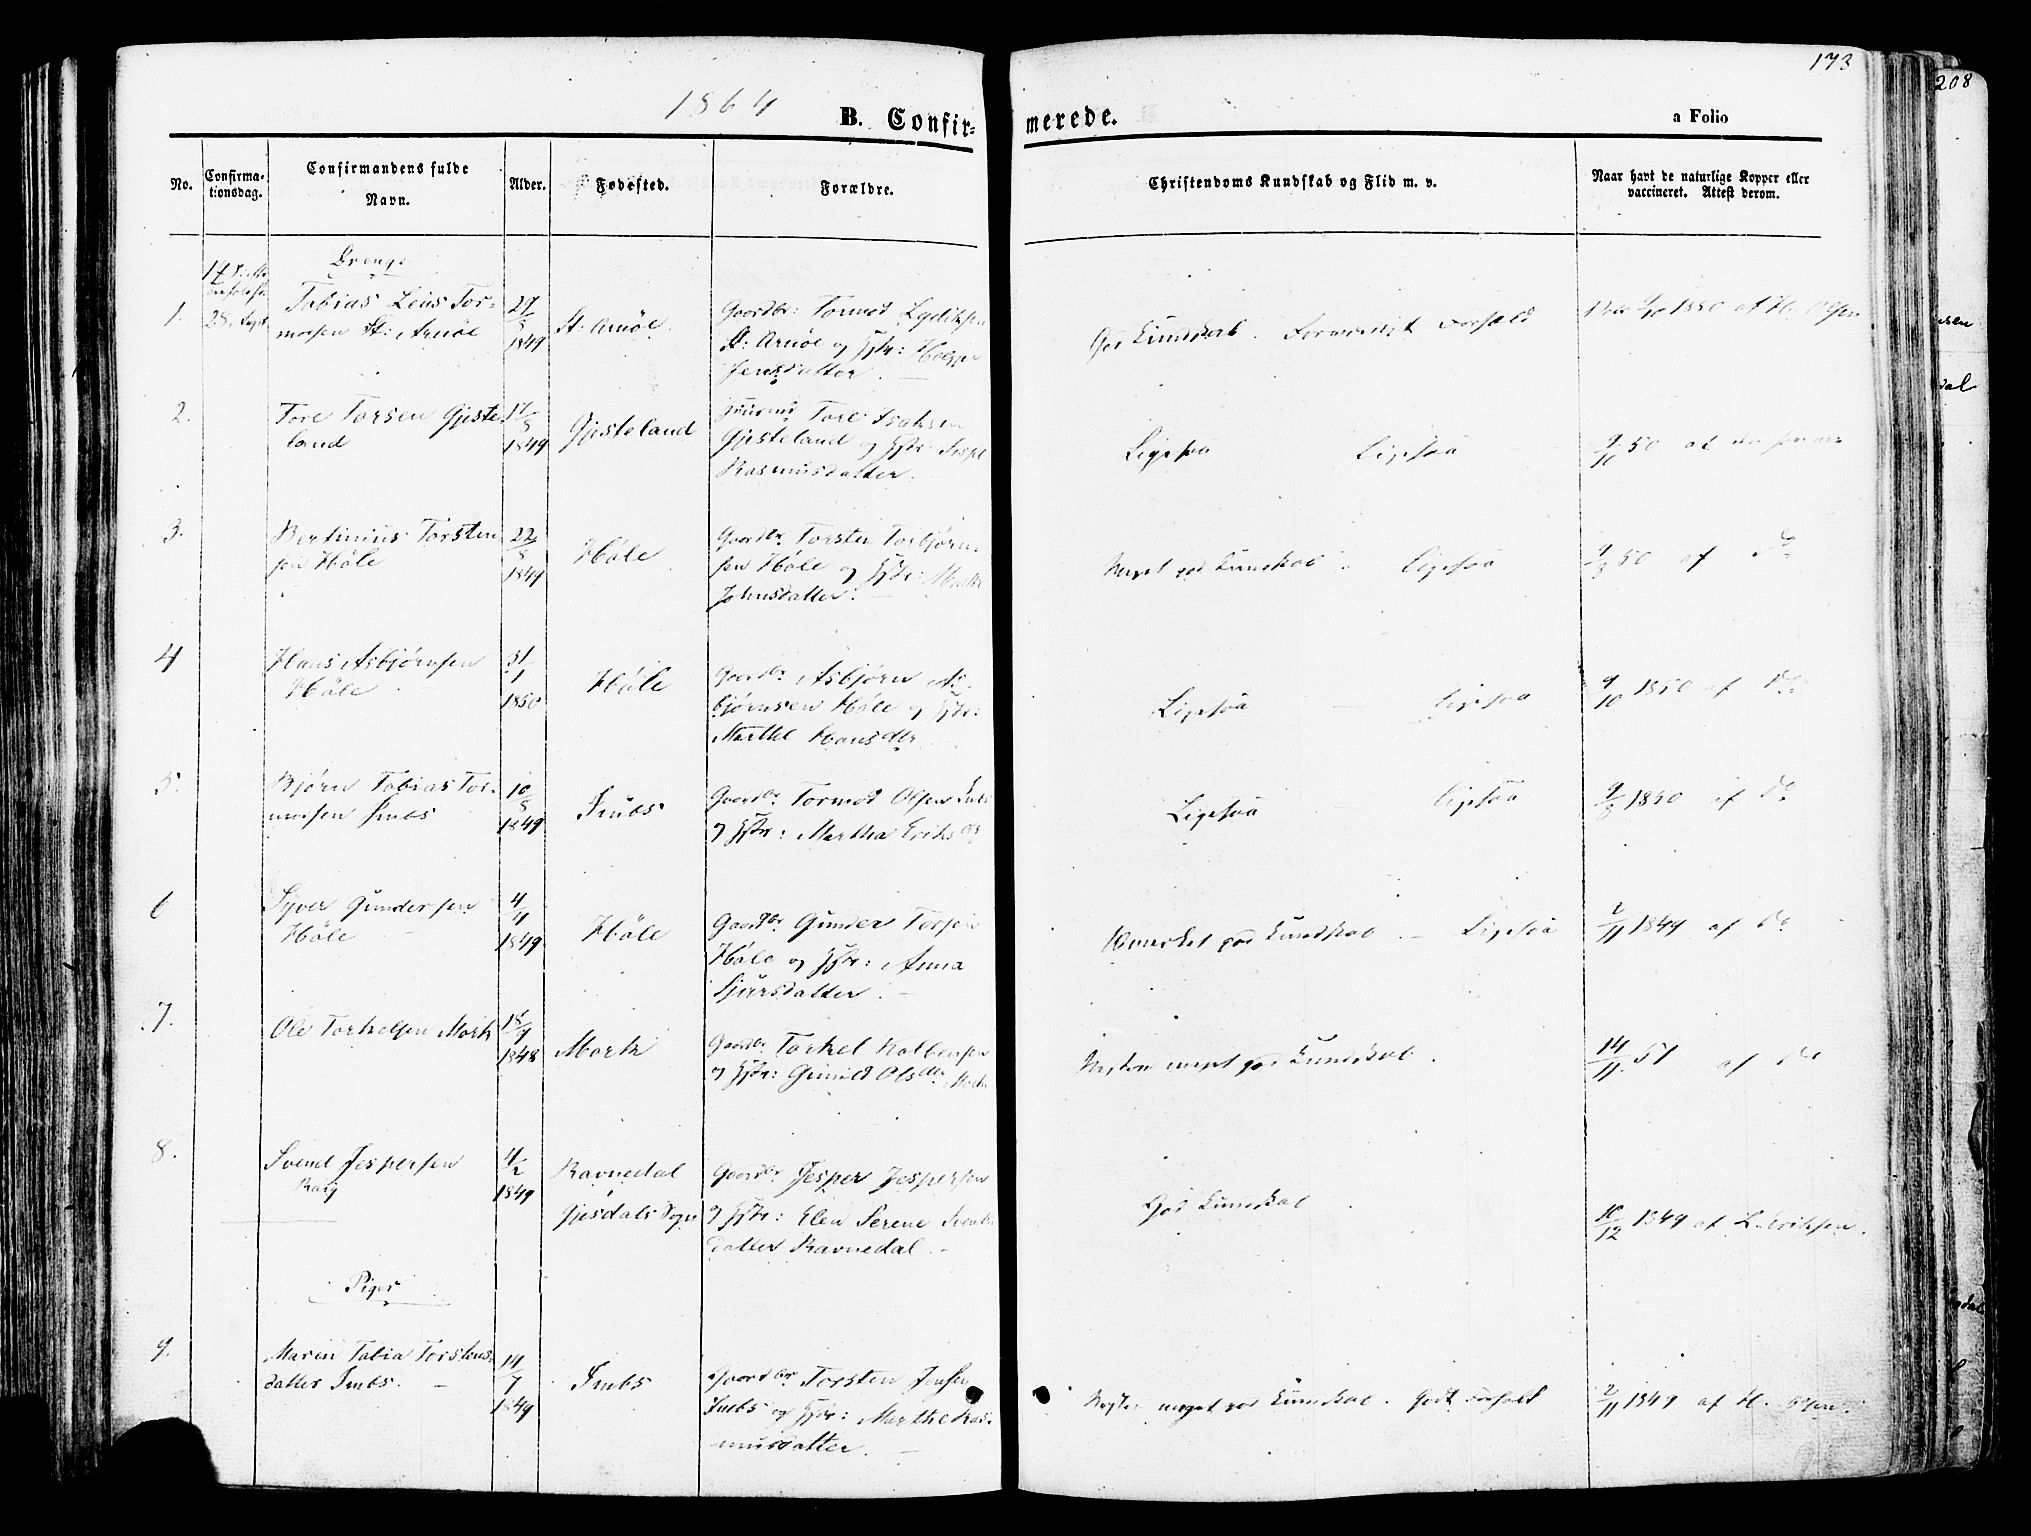 173
208
1864
B. Confir-
merede.
a Folio
No.
Confirma-
tionsdag.
Confirmandens fulde
Navn.
Alder.
Fødested.
Forældre.
Christendoms Kundskab og Flid m. v.
Naar havt de naturlige Kopper eller
vaccineret. Attest derom.
Drenge
1.
25 Sept
Tobias Leus Tor-
morsen St: Arnöe
29/5
1849
St: Arnöe.
Gaardbr: Tormod Lydiksen
St: Arnöe og Hstr:
Jensdatter.
God Kundskab. Forhold
1850 af H. Olsen
2.
Tore Torsen Gjiste-
land
17/5
1849
Gjisteland
Tore Isaksen
Gjisteland og Hstr:
Rasmusdatter.
Ligesaa Ligesaa
9/10 50 af
3.
Bertinius Torsten
sen Høle
22/5
1849
Høle
Gaardbr Torsten Torbjørn-
sen Høle og Hstr: Marthe
Johnsdatter.
Meget god Kundskab. Ligesaa
50 af Do
4
Hans Asbjørnsen
Høle
31/1
1850
Høle
Gaardbr Asbjørn As-
bjørnsen Høle og Hstr:
Marthe Hansdtr
Ligesaa Ligesaa
9/10 1850 af Do
5.
Bjørn Tobias Tor-
morsen Imbs
10/5
1849
Imbs
Gaardbr Tormod Olsen Imbs
og Hstr: Martha Eriksdr
Ligesaa Ligesaa
1850 af Do
6
Sjver Gundersen
Høle
4/4
1849
Høle
Gaardbr Gunder Torsen
Høle og Hstr: Anna
Sjursdatter.
god Kundskab. Ligesaa
2/11 1849 af Do
7.
Ole Torkelsen Mork
1848
Mork
Gaardbr Torkel Kolbensen
og Hstr: Gunild Olsdtr Mork
Nesten meget god Kundskab.
14/11 51 af Do
8.
Svend Jespersen
4/2
1849
Ravnedal
Gjesdals Sogn
Gaardbr Jesper Jespersen
og Hstr: Elen Serene Svends
datter Ravnedal.
God Kundskab
10/12 1849 af L. Eriksen.
Piger
9.
Maren Tobia Torstens-
datter Imbs.
14/7
1849
Imbs
Gaardbr Torsten Jensen
Imbs og Hstr: Marthe Ras-
musdatter.
Nesten meget god Kundskab. Godt Forhold
2/11 1849 af H. Olsen